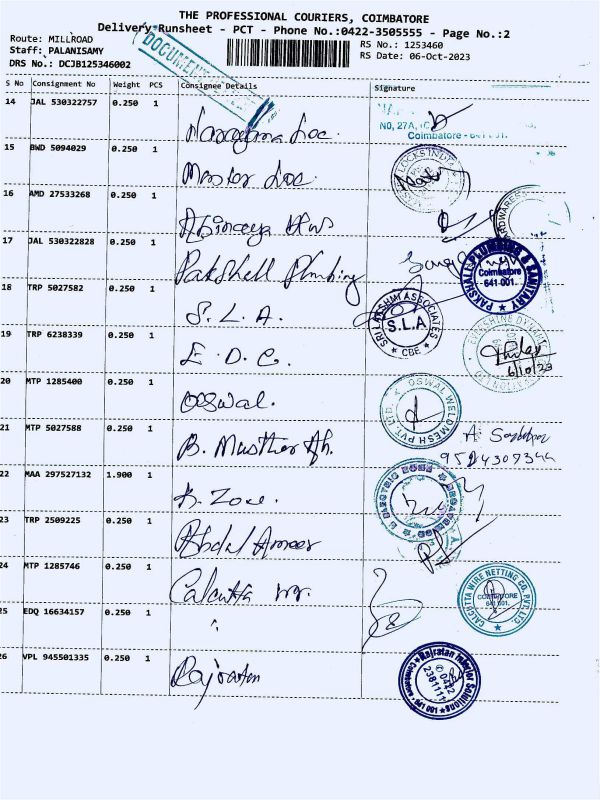 THE PROFESSIONAL COURIERS, COIMBATORE
Delivery Runsheet - PCT - Phone No.:0422-3505555 - Page No.:2
Route: MILLROAD
RS No.: 1253460
Staff: PALANISAMY
RS Date: 06-Oct-2023
DRS No.: DCJB125346002
DOCUMENT
S No Consignment No Weight PCS Consignee Details Signature
14 JAL 530322757 0.250 1
NO, 27A,
Coimbatore - 641 001.
15 BWD 5094029 0.250 1 Master Loc.
LOCKS INDIA
16 AMD 27533268 0.250 1 Abinaya
HARDWARES
17 JAL 530322828 0.250 1 Pakshall Plumbing
PAKSHAL PLUMBING & SANITARY Coimbatore 641 001.
18 TRP 5027582 0.250 1 S. L. A.
SRI LAKSHMI ASSOCIATES S.L.A CBE
19 TRP 6238339 0.250 1 E. D. C.
6/10/23
20 MTP 1285400 0.250 1 Oswal.
OSWAL WELDMESH PVT. LTD.
21 MTP 5027588 0.250 1
22 MAA 297527132 1.900 1 K. Zone.
ELECTRIC ZONE
23 TRP 2509225 0.250 1 Abdul Ameer
24 MTP 1285746 0.250 1 Calcutta wr.
CALCUTTA WIRE NETTING CO. PVT. LTD. COIMBATORE 641 001.
25 EDQ 16634157 0.250 1 "
26 VPL 945501335 0.250 1 Rajratan
Rajratan Interior Solutions 0422 2381111